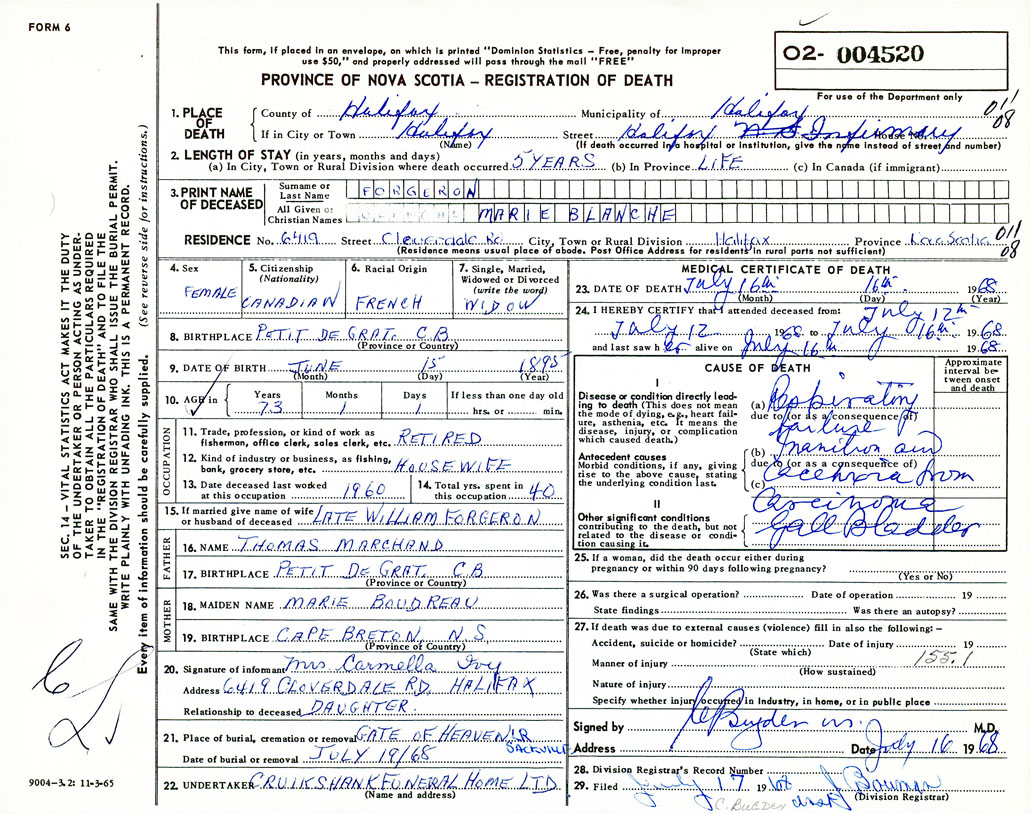 FORM 6
This form, if placed in an envelope, on which is printed "Dominion Statistics – Free, penalty for improper
use $50," and properly addressed will pass through the mail "FREE"
PROVINCE OF NOVA SCOTIA – REGISTRATION OF DEATH
02- 004520
For use of the Department only
011
08
1. PLACE OF DEATH
County of Halifax Municipality of Halifax
If in City or Town Halifax Street Halifax N S Infirmary House No.
(Name) (If death occurred in a hospital or institution, give the name instead of street and number)
2. LENGTH OF STAY (in years, months and days)
(a) In City, Town or Rural Division where death occurred 5 YEARS (b) In Province LIFE (c) In Canada (if immigrant)
3. PRINT NAME OF DECEASED
Surname or Last Name FORGERON
All Given or Christian Names MARIE BLANCHE
RESIDENCE No. 6419 Street Cloverdale Rd. City, Town or Rural Division Halifax Province Nova Scotia
011
08
(Residence means usual place of abode. Post Office Address for residents in rural parts not sufficient)
4. Sex FEMALE
5. Citizenship (Nationality) CANADIAN
6. Racial Origin FRENCH
7. Single, Married, Widowed or Divorced (write the word) WIDOW
8. BIRTHPLACE PETIT DE GRAT. C.B
(Province or Country)
9. DATE OF BIRTH JUNE 15 1895
(Month) (Day) (Year)
10. AGE in Years 73 Months 1 Days 1 If less than one day old hrs. or min.
OCCUPATION
11. Trade, profession, or kind of work as fisherman, office clerk, sales clerk, etc. RETIRED
12. Kind of industry or business, as fishing, bank, grocery store, etc. HOUSEWIFE
13. Date deceased last worked at this occupation 1960
14. Total yrs. spent in this occupation 40
15. If married give name of wife or husband of deceased LATE WILLIAM FORGERON
FATHER
16. NAME THOMAS MARCHAND
17. BIRTHPLACE PETIT DE GRAT. C B
(Province or Country)
MOTHER
18. MAIDEN NAME MARIE BOUDREAU
19. BIRTHPLACE CAPE BRETON, N.S.
(Province of Country)
20. Signature of informant Mrs Carmella Ivy
Address 6419 CLOVERDALE RD. HALIFAX
Relationship to deceased DAUGHTER.
21. Place of burial, cremation or removal GATE OF HEAVEN LR SACKVILLE
Date of burial or removal JULY 19/68
22. UNDERTAKER CRUIKSHANK FUNERAL HOME LTD
(Name and address)
MEDICAL CERTIFICATE OF DEATH
23. DATE OF DEATH July 16th 16th 1968
(Month) (Day) (Year)
24. I HEREBY CERTIFY that I attended deceased from: July 12th
July 12 1968 to July 16th 1968
and last saw her alive on July 16th 1968
CAUSE OF DEATH
Approximate interval between onset and death
I
Disease or condition directly leading to death (This does not mean the mode of dying, e.g., heart failure, asthenia, etc. It means the disease, injury, or complication which caused death.)
(a) Respiratory
due to (or as a consequence of)
failure
Antecedent causes
Morbid conditions, if any, giving rise to the above cause, stating the underlying condition last.
(b) Inanition and
due to (or as a consequence of)
(c) Cachexia from
Carcinoma
Gall Bladder
II
Other significant conditions contributing to the death, but not related to the disease or condition causing it.
25. If a woman, did the death occur either during pregnancy or within 90 days following pregnancy?
(Yes or No)
26. Was there a surgical operation? Date of operation 19
State findings Was there an autopsy?
27. If death was due to external causes (violence) fill in also the following: –
Accident, suicide or homicide? Date of injury 19
(State which)
155.1
Manner of injury
(How sustained)
Nature of injury
Specify whether injury occurred in industry, in home, or in public place
Signed by M.D.
Address Date July 16 1968
28. Division Registrar's Record Number
29. Filed July 17 1968 Bowman
(Division Registrar)
C. BUEDEN
SEC. 14 – VITAL STATISTICS ACT MAKES IT THE DUTY
OF THE UNDERTAKER OR PERSON ACTING AS UNDER-
TAKER TO OBTAIN ALL THE PARTICULARS REQUIRED
IN THE "REGISTRATION OF DEATH" AND TO FILE THE
SAME WITH THE DIVISION REGISTRAR WHO SHALL ISSUE THE BURIAL PERMIT.
WRITE PLAINLY WITH UNFADING INK. THIS IS A PERMANENT RECORD.
Every item of information should be carefully supplied. (See reverse side for instructions.)
9004–3.2: 11-3-65